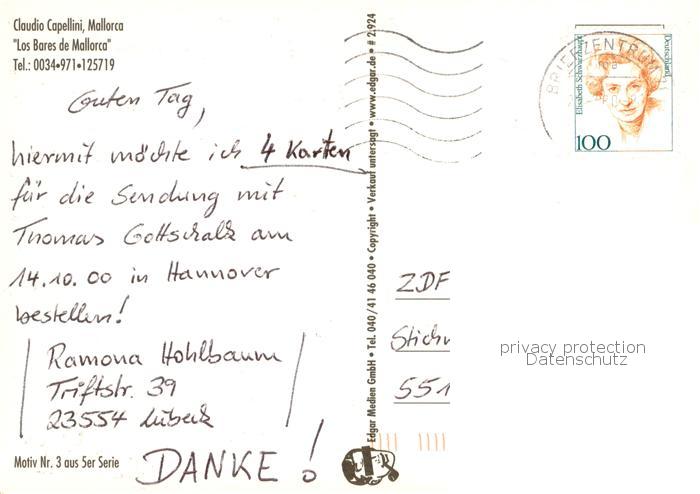 Claudio Capellini, Mallorca
"Los Bares de Mallorca"
Tel.: 0034•971•125719
Guten Tag,
hiermit möchte ich 4 Karten
für die Sendung mit
Thomas Gottschalk am
14.10.00 in Hannover
bestellen!
Ramona Hohlbaum
Triftstr. 39
23554 Lübeck
DANKE!
Motiv Nr. 3 aus 5er Serie
Edgar Medien GmbH • Tel. 040/41 46 040 • Copyright • Verkauf untersagt • www.edgar.de • # 2.924
BRIEFZENTRUM
Elisabeth Schwarzhaupt
Deutschland
100
ZDF
Stichw
551
privacy protection
Datenschutz